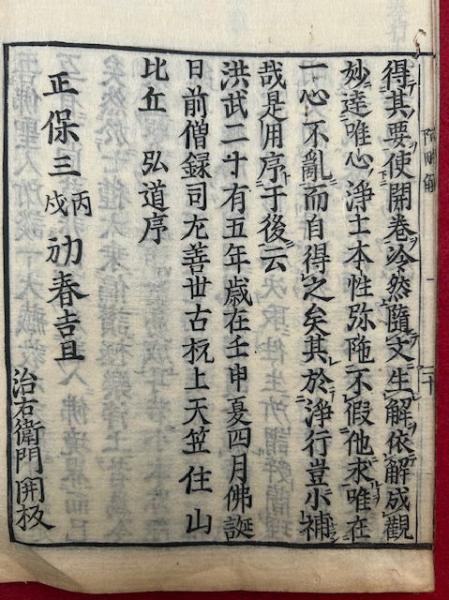 得其要使開卷泠然隨文生解依解成觀
妙達唯心淨土本性弥陁不假他求唯在
一心不亂而自得之矣其於淨行豈小補
哉是用序于後云
洪武二十有五年歲在壬申夏四月佛誕
日前僧錄司左善世古杭上天竺住山
比丘 弘道序
正保三丙戌初春吉旦
治右衛門開板